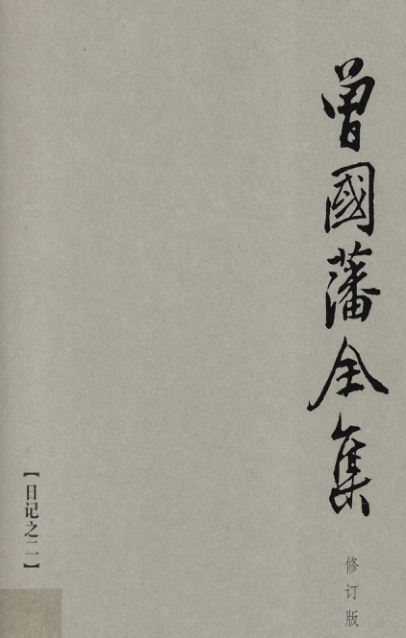 曾國藩全集
修订版
【日记之二】